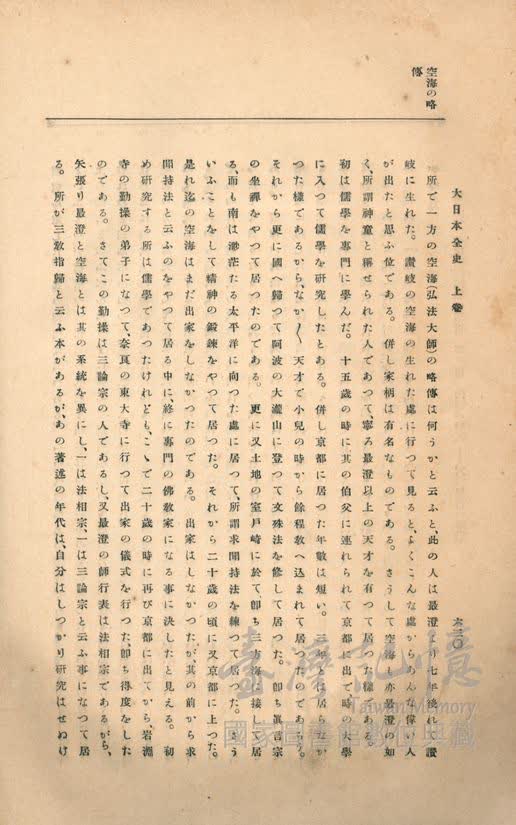 空海の略
傳
大日本全史　上卷
六三〇
所で一方の空海(弘法大師)の略傳は何うかと云ふと、此の人は最澄より七年後れて讚
岐に生れた。讚岐の空海の生れた處に行つて見ると、よくこんな處からあんな偉い人
が出たと思ふ位である。併し家柄は有名なものである。さうして空海も亦最澄の如
く、所謂神童と稱せられた人であつて、寧ろ最澄以上の天才を有つて居つた樣である。
初は儒學を專門に學んだ。十五歲の時に其の伯父に連れられて京都に出で時の大學
に入つて儒學を研究したとある。併し京都に居つた年數は短い。三年とは居らなか
つた樣であるから、なか〳〵天才で小兒の時から餘程敎へ込まれて居つたのであらう。
それから更に國へ歸つて阿波の大瀧山に登つて文殊法を修して居つた。卽ち眞言宗
の坐禪をやつて居つたのである。更に又土地の室戶崎に於て卽ち三方海に接して居
る、而も南は渺茫たる太平洋に向つた處に居つて、所謂求聞持法を練つて居つた。さう
いふことをして精神の鍛鍊をやつて居つた。それから二十歲の頃に又京都に上つた。
是れ迄の空海はまだ出家をしなかつたのである。出家はしなかつたが其の前から求
聞持法と云ふのをやつて居る中に、終に專門の佛敎家になる事に決したと見える。初
め研究する所は儒學であつたけれども、こゝで二十歲の時に再び京都に出てから、岩淵
寺の勤操の弟子になつて、奈良の東大寺に行つて出家の儀式を行つた、卽ち得度をした
のである。さてこの勤操は三論宗の人であるし、又最澄の師行表は法相宗であるがら、
矢張り最澄と空海とは其の系統を異にし、一は法相宗、一は三論宗と云ふ事になつて居
る。所が三敎指歸と云ふ本があるが、あの著述の年代は、自分はしつかり研究はせぬけ
臺灣記憶
Taiwan Memory
國家圖書館數位典藏